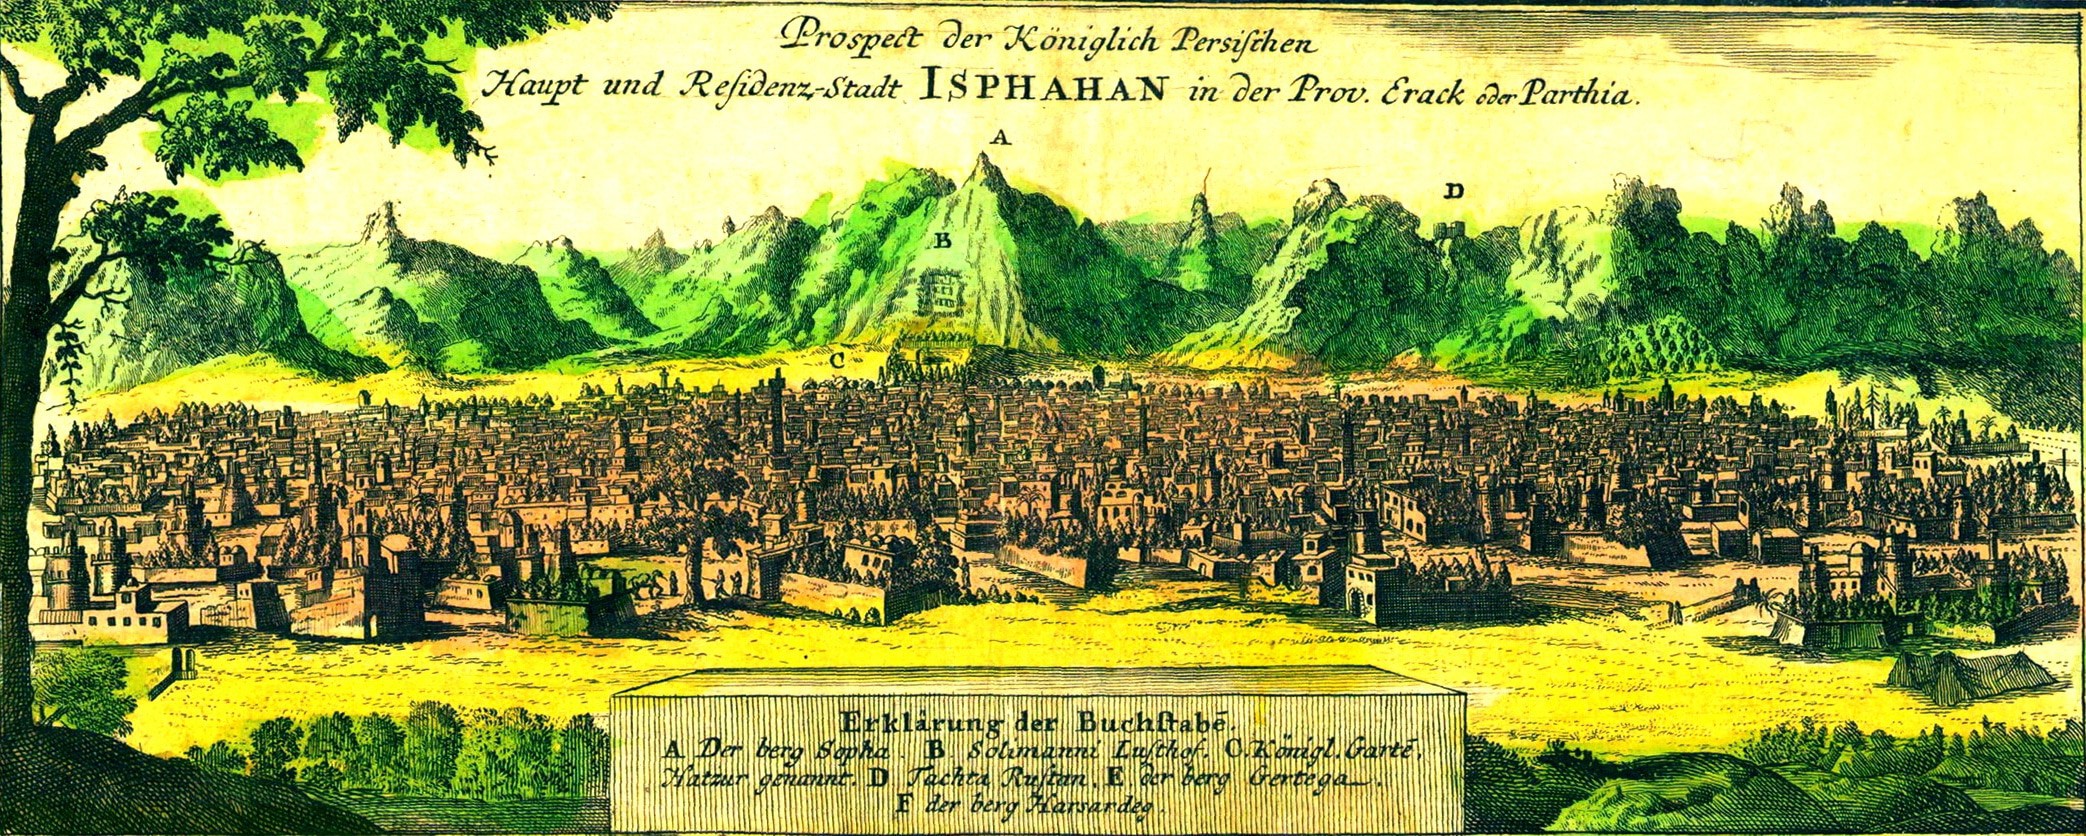 Prospect der Königlich Persischen
Haupt und Residenz-Stadt ISPHAHAN in der Prov. Erack oder Parthia.
A
D
B
C
Erklärung der Buchstabē.
A Der berg Sopha. B Solimanni Lusthof. C. Königl. Gartē,
Hatzur genannt. D Tachta Rustan, E der berg Gertega.
F der berg Harsardeg.